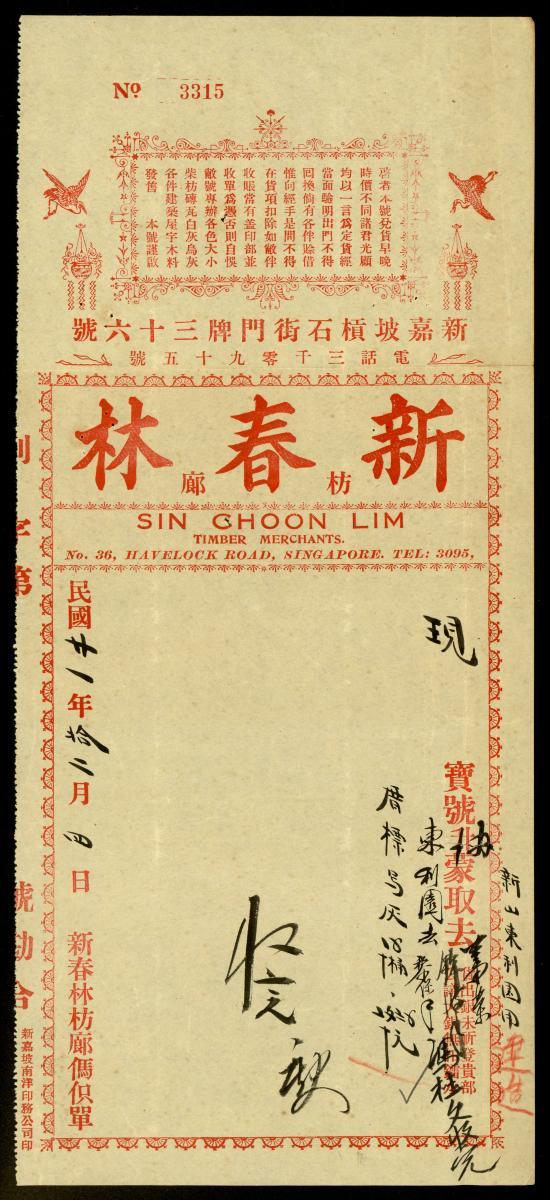 Nº 3315
啓者本號兌貨早晚
時價不同諸君光顧
均以一言為定貨經
當面驗明出門不得
回換倘有各伴賒借
惟向經手是問不得
在貨項扣除如敝伴
收賬當有盖印部並
收單為憑否則自悞
敝號專辦各色大小
柴枋磚瓦白灰烏灰
各件建築屋宇木料
發售 本號謹啟
新嘉坡槓石街門牌三十六號
電話三千零九十五號
新春林
枋廊
SIN CHOON LIM
TIMBER MERCHANTS.
No. 36, HAVELOCK ROAD, SINGAPORE. TEL: 3095,
現
新山東利園用
建造
寶號 蒙取去
東利園去
唐標烏灰
收完
民國廿一年拾二月四日
新春林枋廊傌俱單
列字第
號勘合
新嘉坡南洋印務公司印